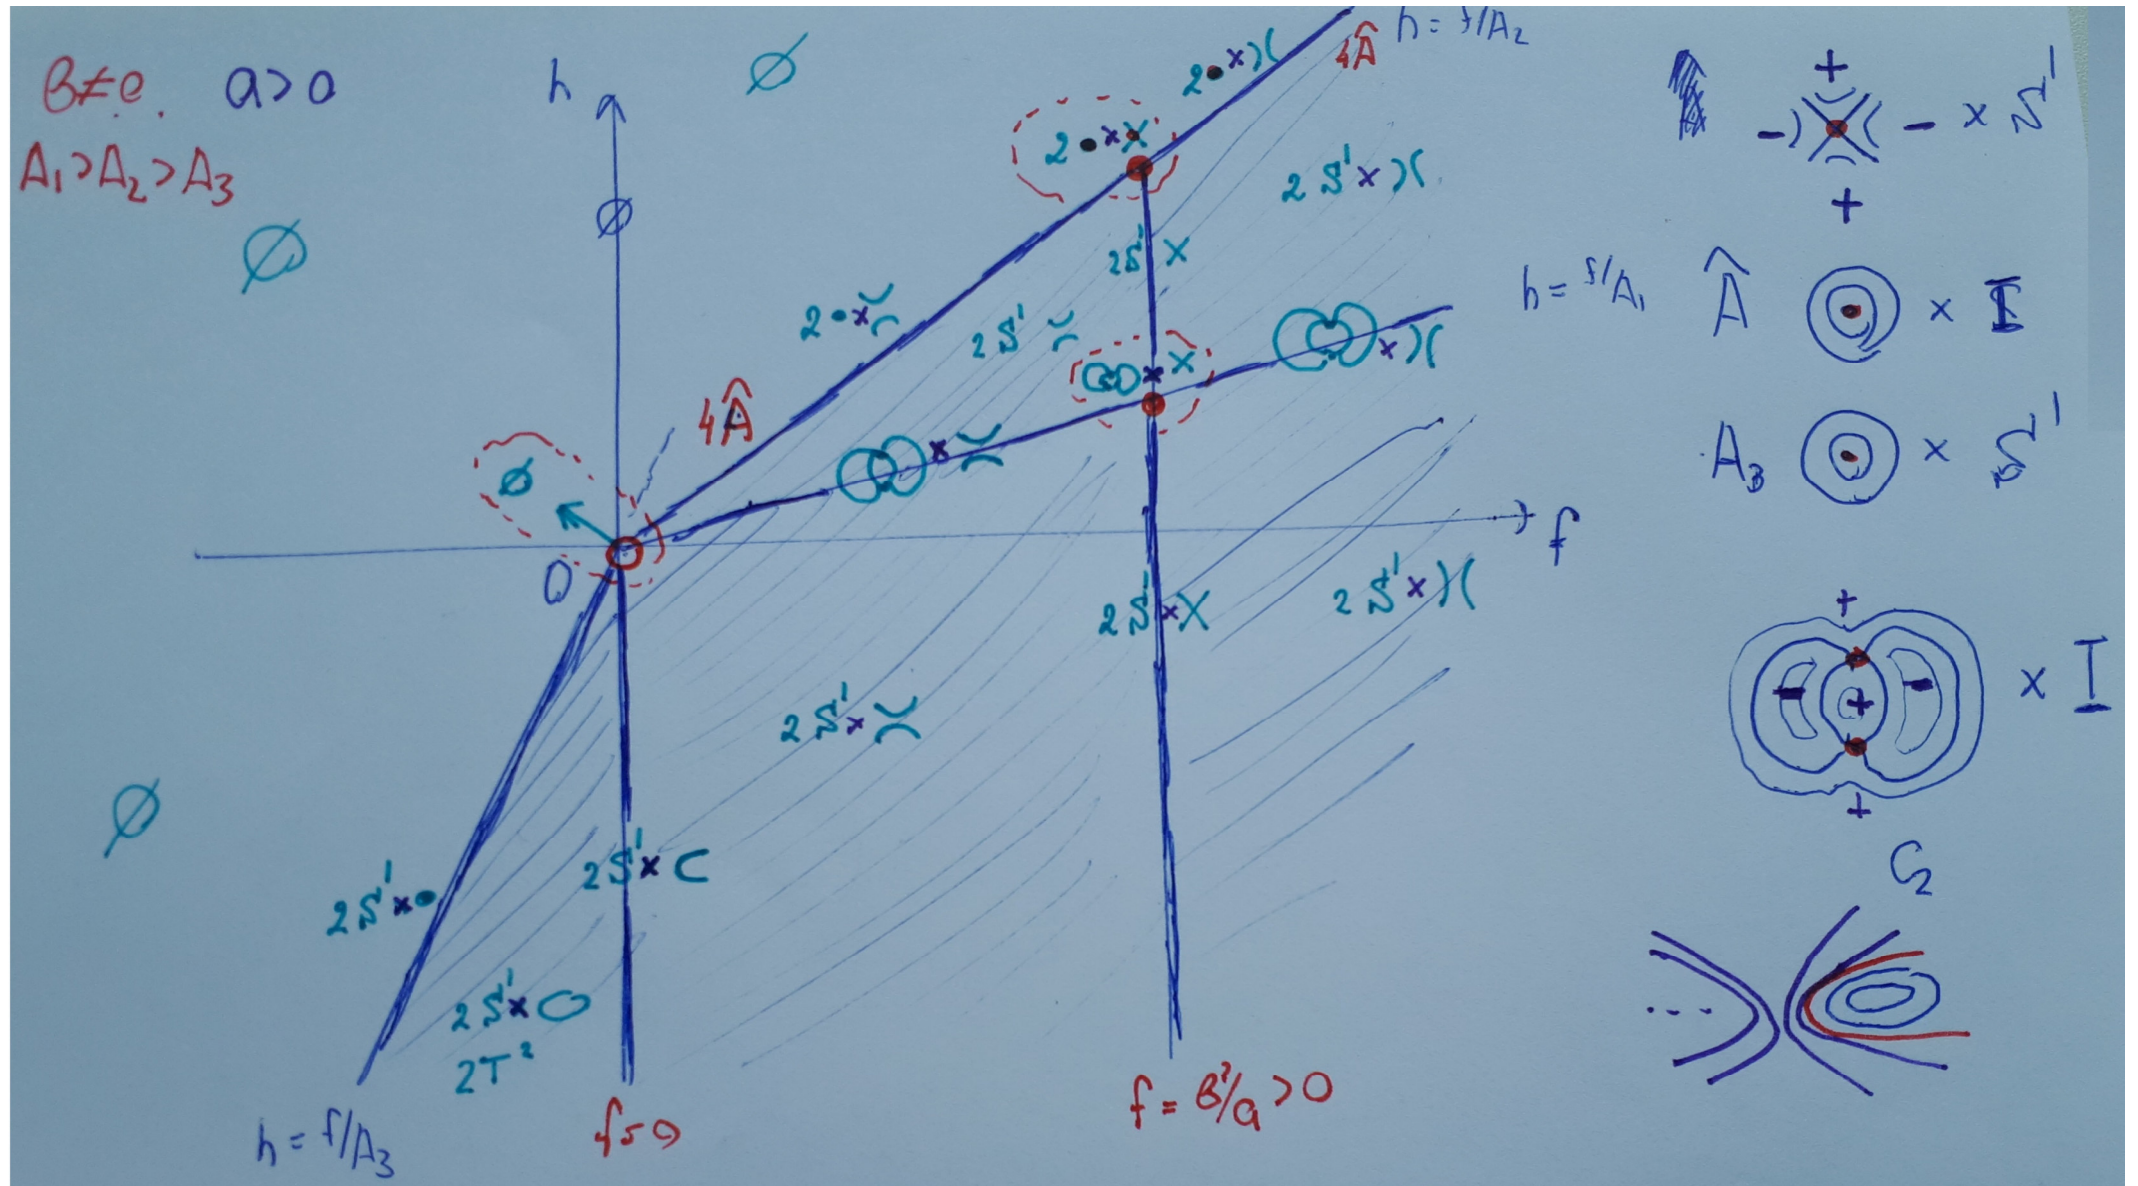 B≠0. a>0
A₁>A₂>A₃
h
∅
∅
∅
∅
2•×)(
4Â
h = f/A₂
2•×X
2S¹×)(
2S¹ X
2•×≍
2S¹ ≍
4Â
×≍
×X
×)(
h = f/A₁
∅
0
f
2S¹×≍
2S¹×X
2S¹×)(
2S¹×⊂
2S¹×•
2S¹×O
2T²
h = f/A₃
f=0
f = B²/a > 0
+
- - × S¹
+
Â × I
A₃ × S¹
+
- + - × I
+
C₂
...